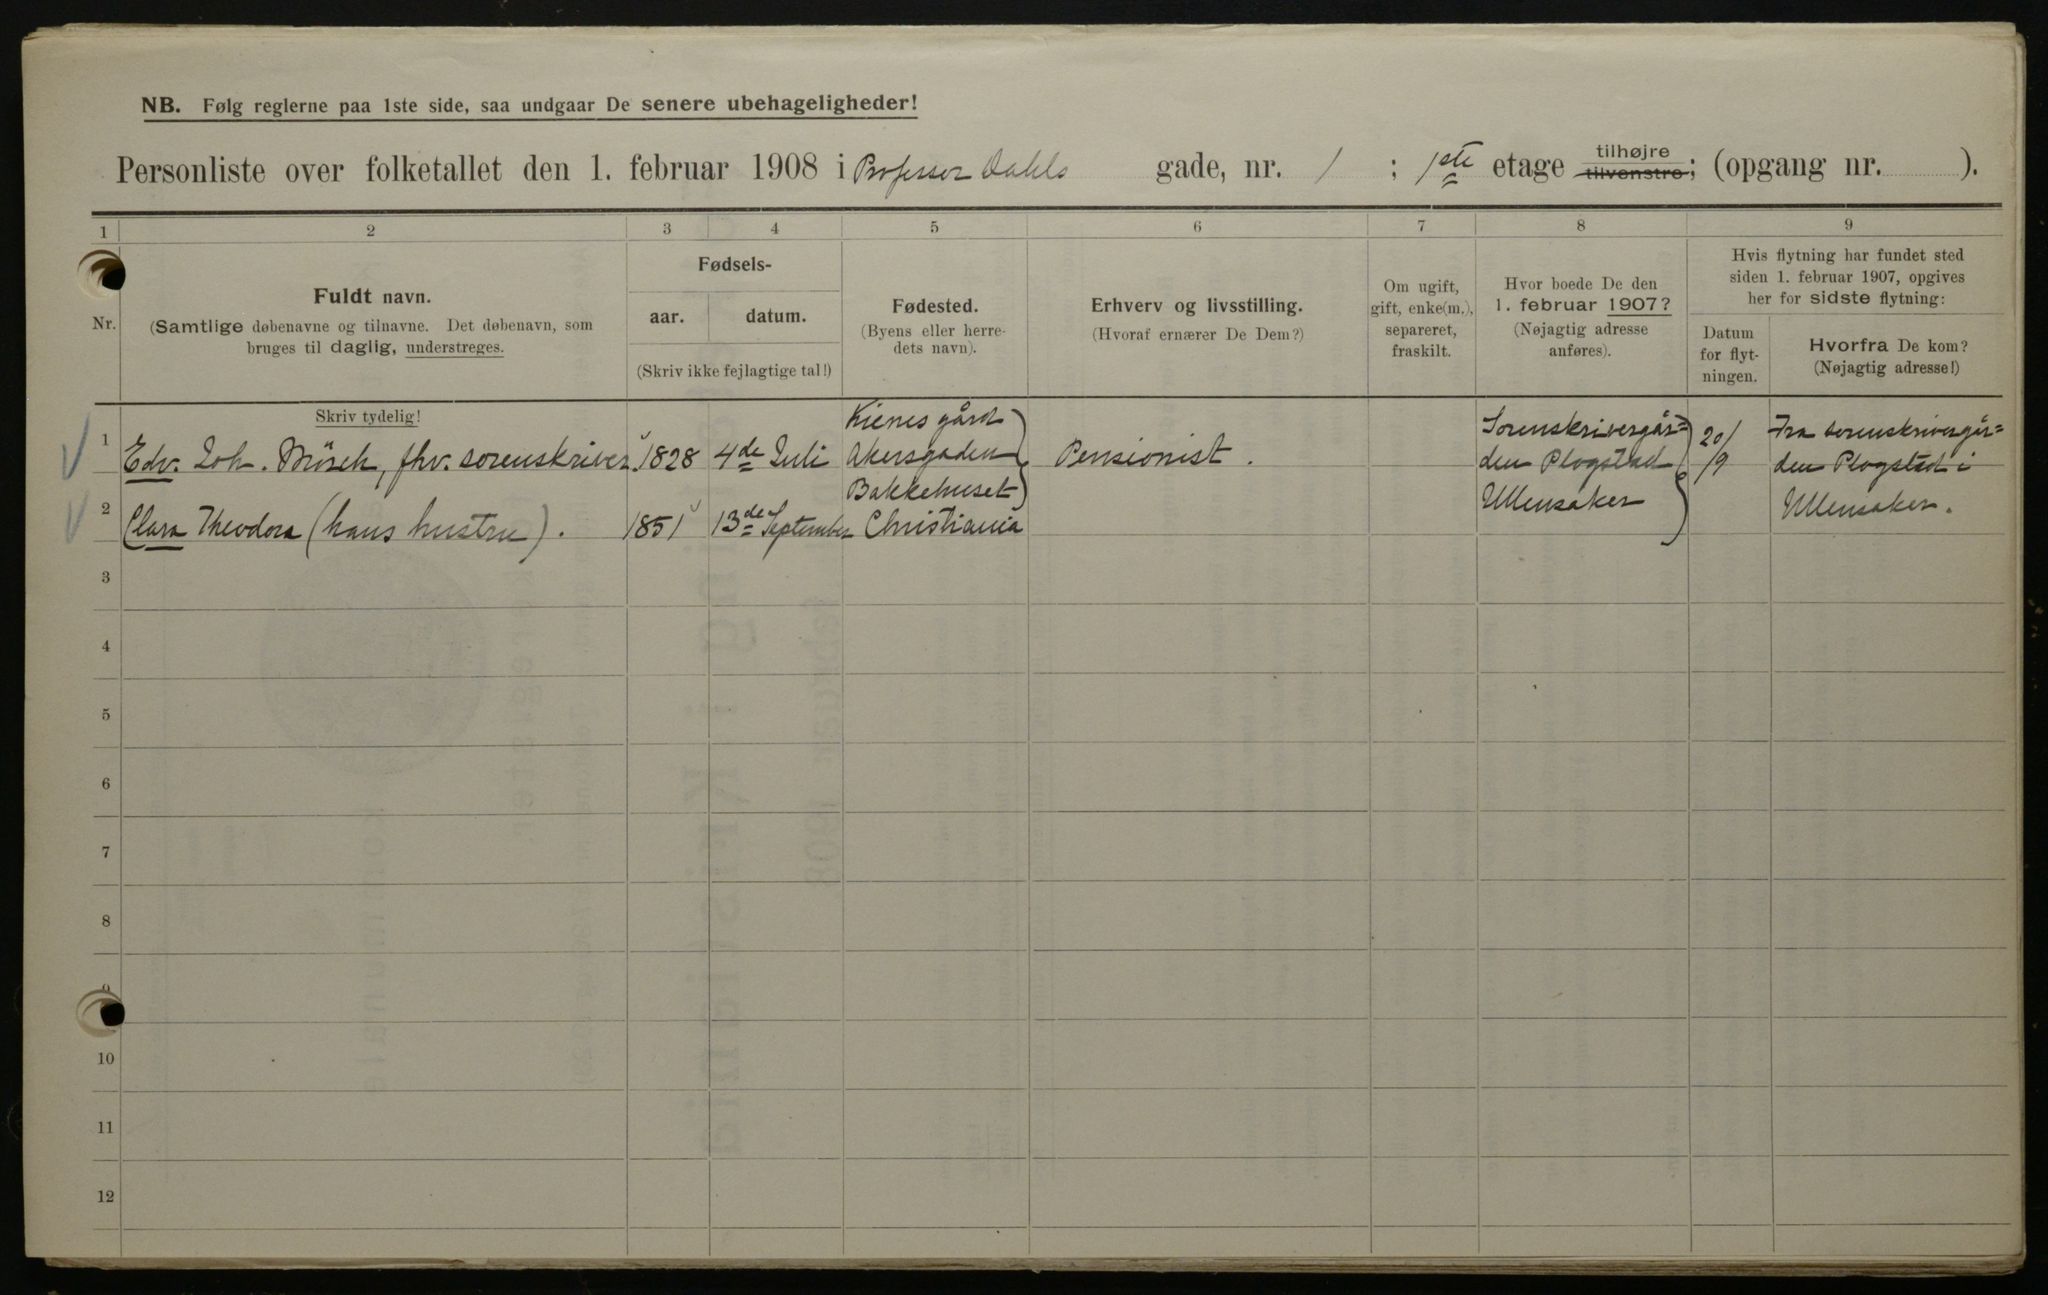 NB. Følg reglerne paa 1ste side, saa undgaar De senere ubehageligheder!
Personliste over folketallet den 1. februar 1908 i Professor Dahls gade, nr. 1 ; 1ste etage tilhøjre tilvenstre; (opgang nr. ).
1 2 3 4 5 6 7 8 9
Nr.
Fuldt navn.
(Samtlige døbenavne og tilnavne. Det døbenavn, som
bruges til daglig, understreges.
Fødsels-
aar. datum.
(Skriv ikke fejlagtige tal!)
Fødested.
(Byens eller herre-
dets navn).
Erhverv og livsstilling.
(Hvoraf ernærer De Dem?)
Om ugift,
gift, enke(m.),
separeret,
fraskilt.
Hvor boede De den
1. februar 1907?
(Nøjagtig adresse
anføres).
Hvis flytning har fundet sted
siden 1. februar 1907, opgives
her for sidste flytning:
Datum
for flyt-
ningen.
Hvorfra De kom?
(Nøjagtig adresse!)
Skriv tydelig!
1 Edv. Joh. , fhv. sorenskriver. 1828 4de Juli
Kienes gård
Akersgaden
Bakkehuset
Pensionist.
Sorenskrivergår=
den Plogstad
Ullensaker
20/
/9
Fra sorenskrivergår=
den Plogstad i
Ullensaker.
2 Clara Theodora (hans hustru). 1851 13de September Christiania
3
4
5
6
7
8
9
10
11
12